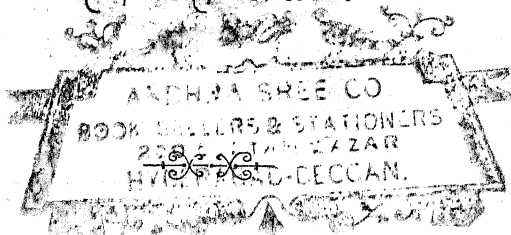 ANDHRA SHEE CO
BOOK SELLERS & STATIONERS
BAZAR
HYDERABAD-DECCAN.